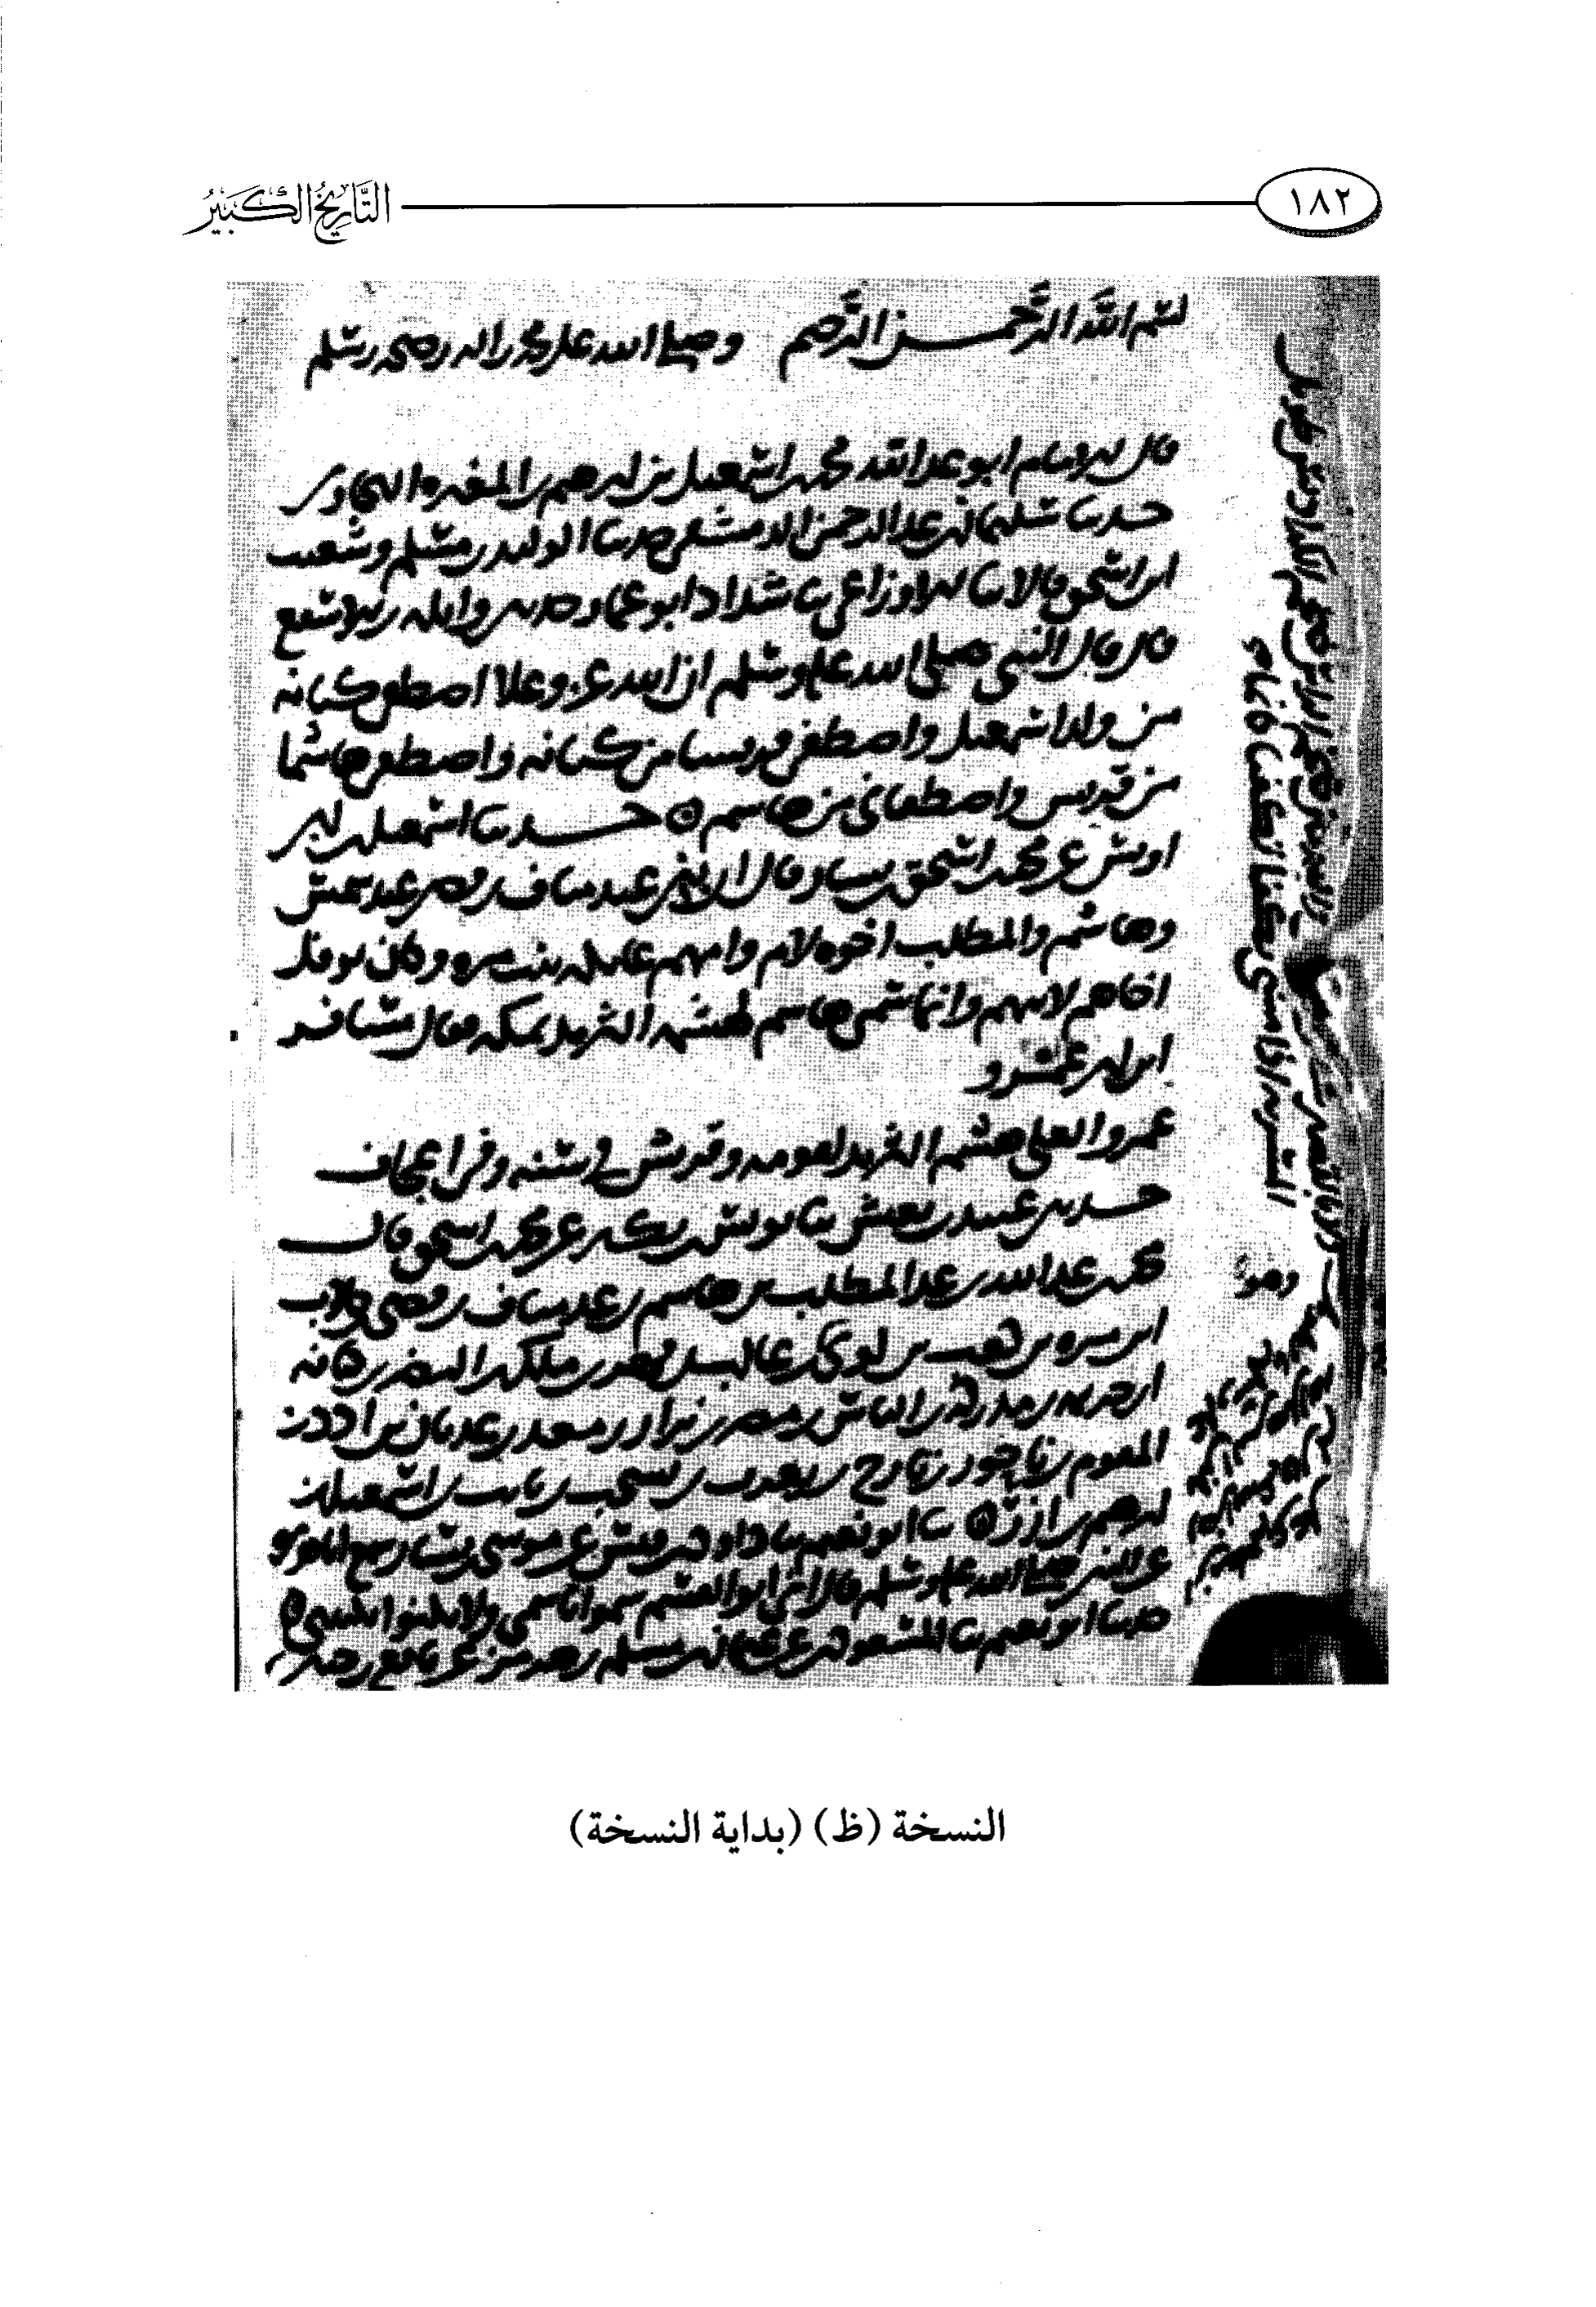 ١٨٢
التَّارِيخُ الكَبِيرُ
بسم الله الرَّحمـن الرَّحيم وصلى الله على محمد واله وصحبه وسلم
قال الامام ابو عبد الله محمد بن اسمعيل بن ابرهيم بن المغيره البخاري
حدثنا سليمان بن عبد الرحمن الدمشقي حدثنا الوليد بن مسلم وشعيب
ابن اسحق قالا ثنا الاوزاعي ثنا شداد ابو عمار حدثني واثله بن الاسقع
قال قال النبي صلى الله عليه وسلم ان الله عز وعلا اصطفى كنانه
من ولد اسمعيل واصطفى قريشا من كنانه واصطفى هاشما
من قريش واصطفاني من هاشم حدثنا اسمعيل بن ابي
اويس عن محمد بن اسحق بن يسار قال ان بني عبد مناف بن قصي عبد شمس
وهاشم والمطلب اخوه لام وامهم عاتكه بنت مره وكان نوفل
اخاهم لابيهم وانما سمي هاشم لهشمه الثريد بمكه فقال مسافر
ابن ابي عمرو
عمرو العلى هشم الثريد لقومه وقريش في سنه وفي اعجاف
حدثني عبيد بن يعيش ثنا يونس بن بكير عن محمد بن اسحق قال
محمد بن عبد الله بن عبد المطلب بن هاشم بن عبد مناف بن قصي بن كلاب
ابن مره بن كعب بن لوي بن غالب بن فهر بن ملك بن النضر بن كنانه
ابن خزيمه بن مدركه بن الياس بن مضر بن نزار بن معد بن عدنان بن ادد بن
المقوم بن ناحور بن تارح بن يعرب بن يشجب بن نابت بن اسمعيل بن
ابرهيم بن ازر ثنا ابو نعيم ثنا داود بن قيس عن موسى بن يسار سمع ابا هريره
عن النبي صلى الله عليه وسلم قال انا ابو القسم سموا باسمي ولا تكنوا بكنيتي
حدثنا ابو نعيم ثنا المسعودي عن عثمان بن مسلم بن هرمز عن نافع بن جبير
النسخة (ظ) (بداية النسخة)